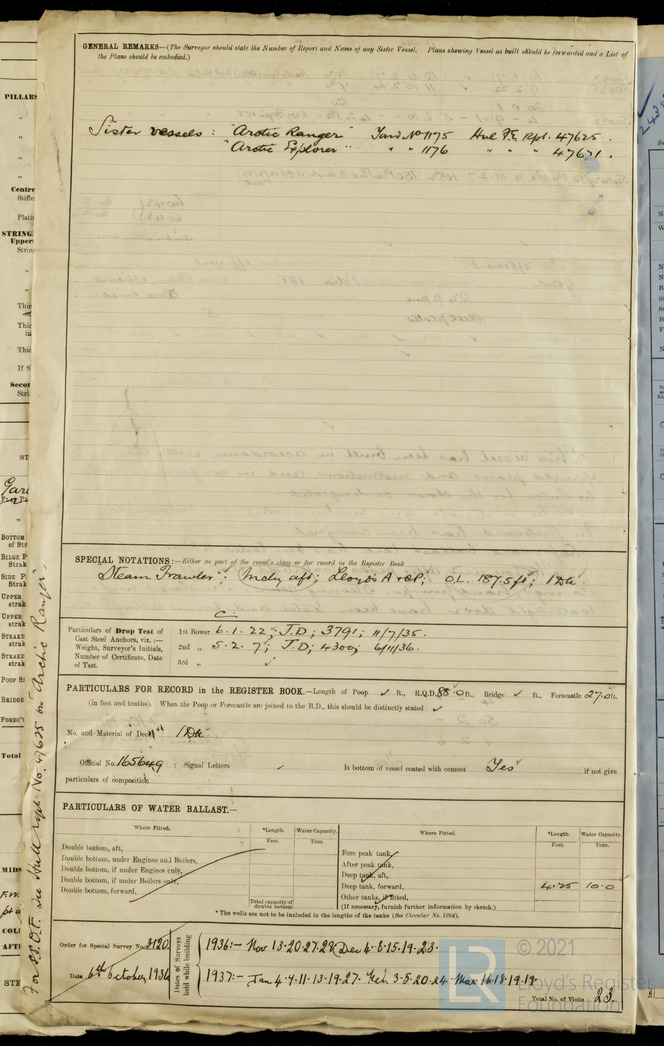 GENERAL REMARKS—(The Surveyor should state the Number of Report and Name of any Sister Vessel. Plans showing Vessel as built should be forwarded and a List of
the Plans should be embodied.)
Sister vessels : "Arctic Ranger" Yard No 1175 Hull F.E. Rpt. 47625.
"Arctic Explorer" " " 1176 " " " 47671.
SPECIAL NOTATIONS:—Either as part of the vessel's class or for record in the Register Book
Steam Trawler; Mchy aft; Lloyd's A & CP; O.L. 187.5 ft; 1 Dk.
C.
Particulars of Drop Test of
Cast Steel Anchors, viz. :—
Weight, Surveyor's Initials,
Number of Certificate, Date
of Test.
1st Bower 6.1.22; J.D; 3791; 11/7/35.
2nd " 5.2.7; J.D; 4300; 6/11/36.
3rd "
PARTICULARS FOR RECORD in the REGISTER BOOK.—Length of Poop ✓ ft., R.Q.D. 88.0 ft., Bridge ✓ ft., Forecastle 27.0 ft.
(in feet and tenths). When the Poop or Forecastle are joined to the B.D., this should be distinctly stated ✓
No. and Material of Decks 1 Dk
Official No. 165649 : Signal Letters Is bottom of vessel coated with cement Yes if not give
particulars of composition
PARTICULARS OF WATER BALLAST.—
Where Fitted. *Length. Water Capacity. Where Fitted. *Length. Water Capacity.
Feet. Tons. Feet. Tons.
Double bottom, aft,
Double bottom, under Engines and Boilers,
Double bottom, if under Engines only,
Double bottom, if under Boilers only,
Double bottom, forward,
Total capacity of
double bottom
Fore peak tank,
After peak tank,
Deep tank, aft,
Deep tank, forward, 4.25 10.0
Other tanks, if fitted,
(If necessary, furnish further information by sketch.)
* The wells are not to be included in the lengths of the tanks (See Circular No. 1284).
Order for Special Survey No. 3120
Date 6th October 1936
Dates of Surveys
held while building
1936:— Nov 13.20.27.28 Dec 4.8.15.19.23.
1937:— Jan 4.7.11.13.19.27. Feb. 3.5.20.24. Mar 16.18.19.19.
Total No. of Visits 23.
For S.S.O.F. see Hull rept. No. 47625 on "Arctic Ranger".
PILLARS
© 2021
LR
Lloyd's Register
Foundation